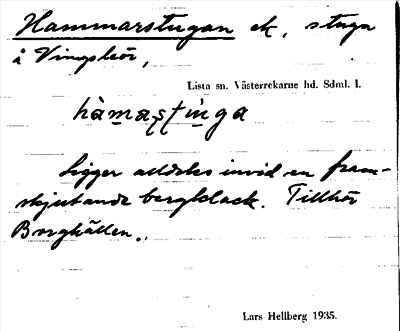 Hammarstugan ek, stuga
i Vingsleör,
Lista sn. Västerrekarne hd. Sdml. l.
hàmaʂtùga
Ligger alldeles invid en fram-
skjutande bergklack. Tillhör
Borghällen.
Lars Hellberg 1935.